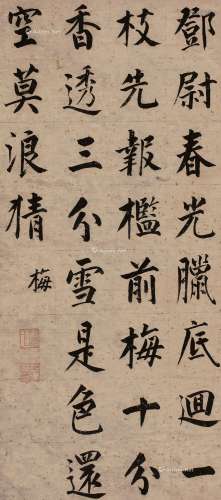 鄧尉春光臘底迴一
枝先報檻前梅十分
香透三分雪是色還
空莫浪猜
梅